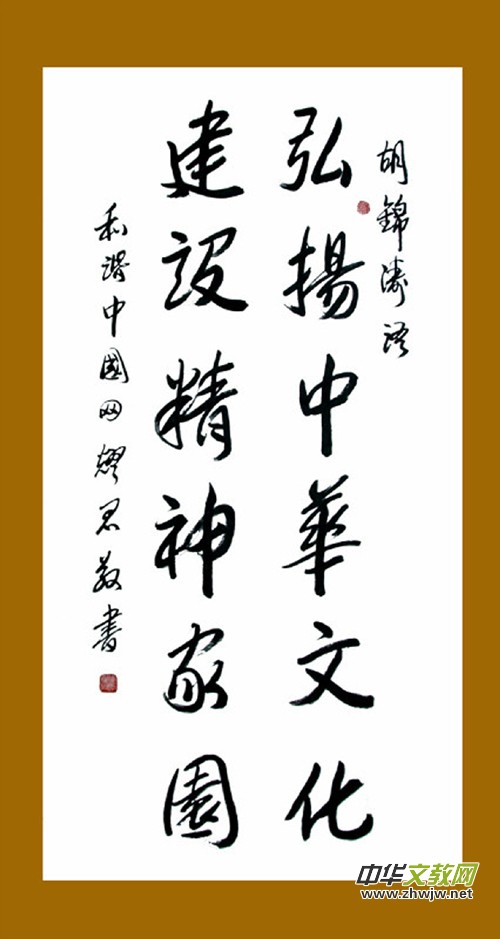 胡錦濤語
弘揚中華文化
建設精神家園
和谐中國网書
中华文教网
www.zhwjw.net